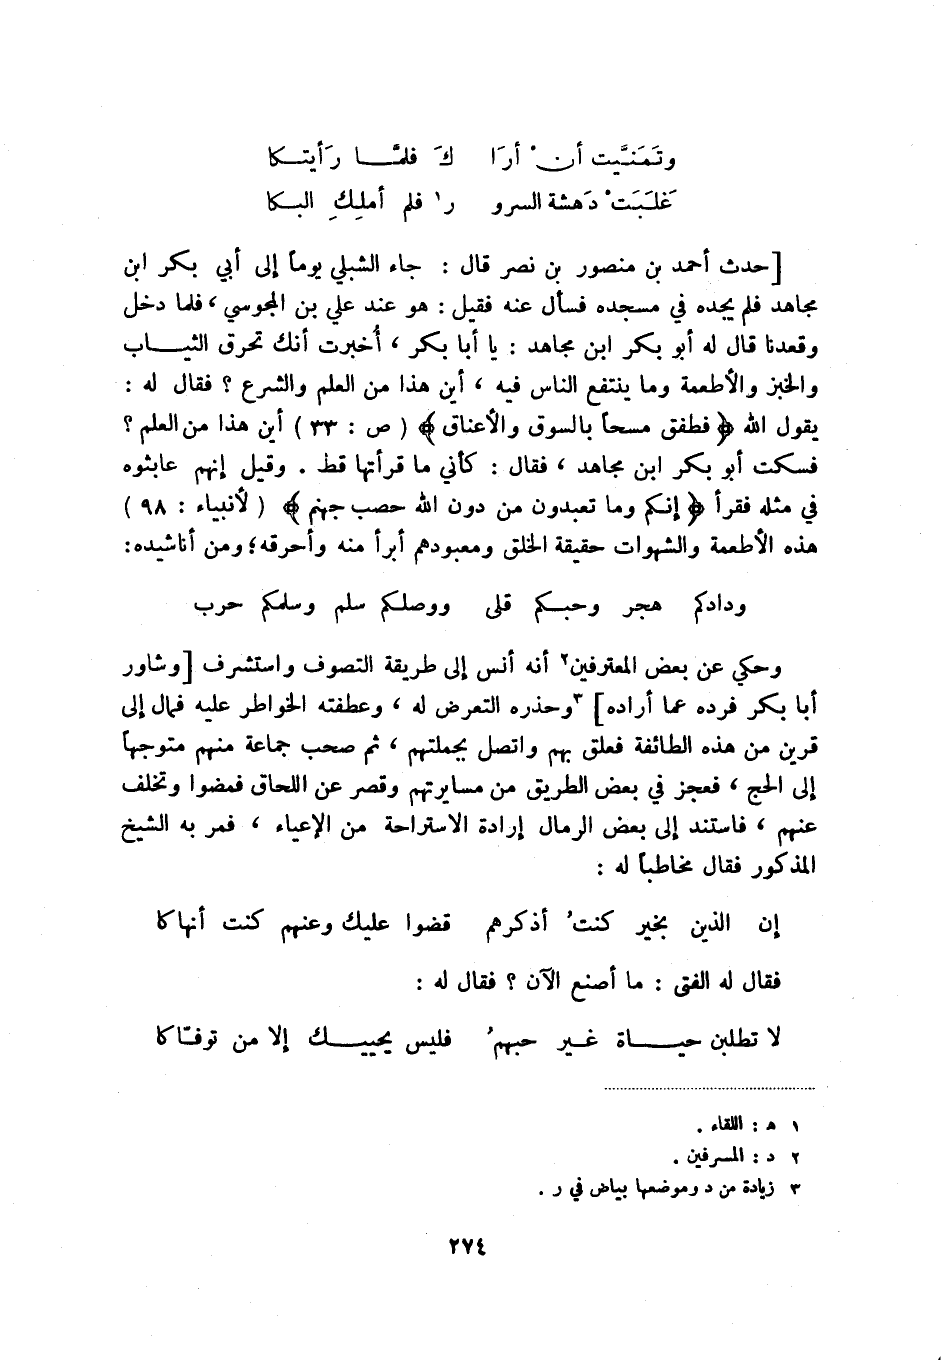 وتَمَنَّيت أنْ أرَا كَ فلمَّــا رَأيتكا
غَلَبَتْ دَهشة السرو ر١ فلم أملِكِ البـكا
[حدث أحمد بن منصور بن نصر قال : جاء الشبلي يوماً إلى أبي بكر ابن
مجاهد فلم يجده في مسجده فسأل عنه فقيل : هو عند علي بن المجوسي ، فلما دخل
وقعدنا قال له أبو بكر ابن مجاهد : يا أبا بكر ، أُخبرت أنك تحرق الثيــاب
والخبز والأطعمة وما ينتفع الناس فيه ، أين هذا من العلم والشرع ؟ فقال له :
يقول الله ﴿ فطفق مسحاً بالسوق والأعناق ﴾ ( ص : ٣٣ ) أين هذا من العلم ؟
فسكت أبو بكر ابن مجاهد ، فقال : كأني ما قرأتها قط . وقيل إنهم عابثوه
في مثله فقرأ ﴿ إنكم وما تعبدون من دون الله حصب جهنم ﴾ ( لأنبياء : ٩٨ )
هذه الأطعمة والشهوات حقيقة الخلق ومعبودهم أبرأ منه وأحرقه؛ ومن أناشيده:
ودادكم هجر وحبـكم قلى ووصلكم سلم وسلمكم حرب
وحكي عن بعض المعترفين٢ أنه أنس إلى طريقة التصوف واستشرف [وشاور
أبا بكر فرده عما أراده]٣ وحذره التعرض له ، وعطفته الخواطر عليه فمال إلى
قرين من هذه الطائفة فعلق بهم واتصل بجملتهم ، ثم صحب جماعة منهم متوجهاً
إلى الحج ، فعجز في بعض الطريق من مسايرتهم وقصر عن اللحاق فمضوا وتخلف
عنهم ، فاستند إلى بعض الرمال إرادة الاستراحة من الإعياء ، فمر به الشيخ
المذكور فقال مخاطباً له :
إن الذين بخير كنتُ أذكرهم قضوا عليك وعنهم كنت أنهاكا
فقال له الفتى : ما أصنع الآن ؟ فقال له :
لا تطلبن حيــاة غـير حبهمُ فليس يحييــك إلا من توفّاكا
١ هـ : اللقاء .
٢ د : المسرفين .
٣ زيادة من د وموضعها بياض في ر .
٢٧٤